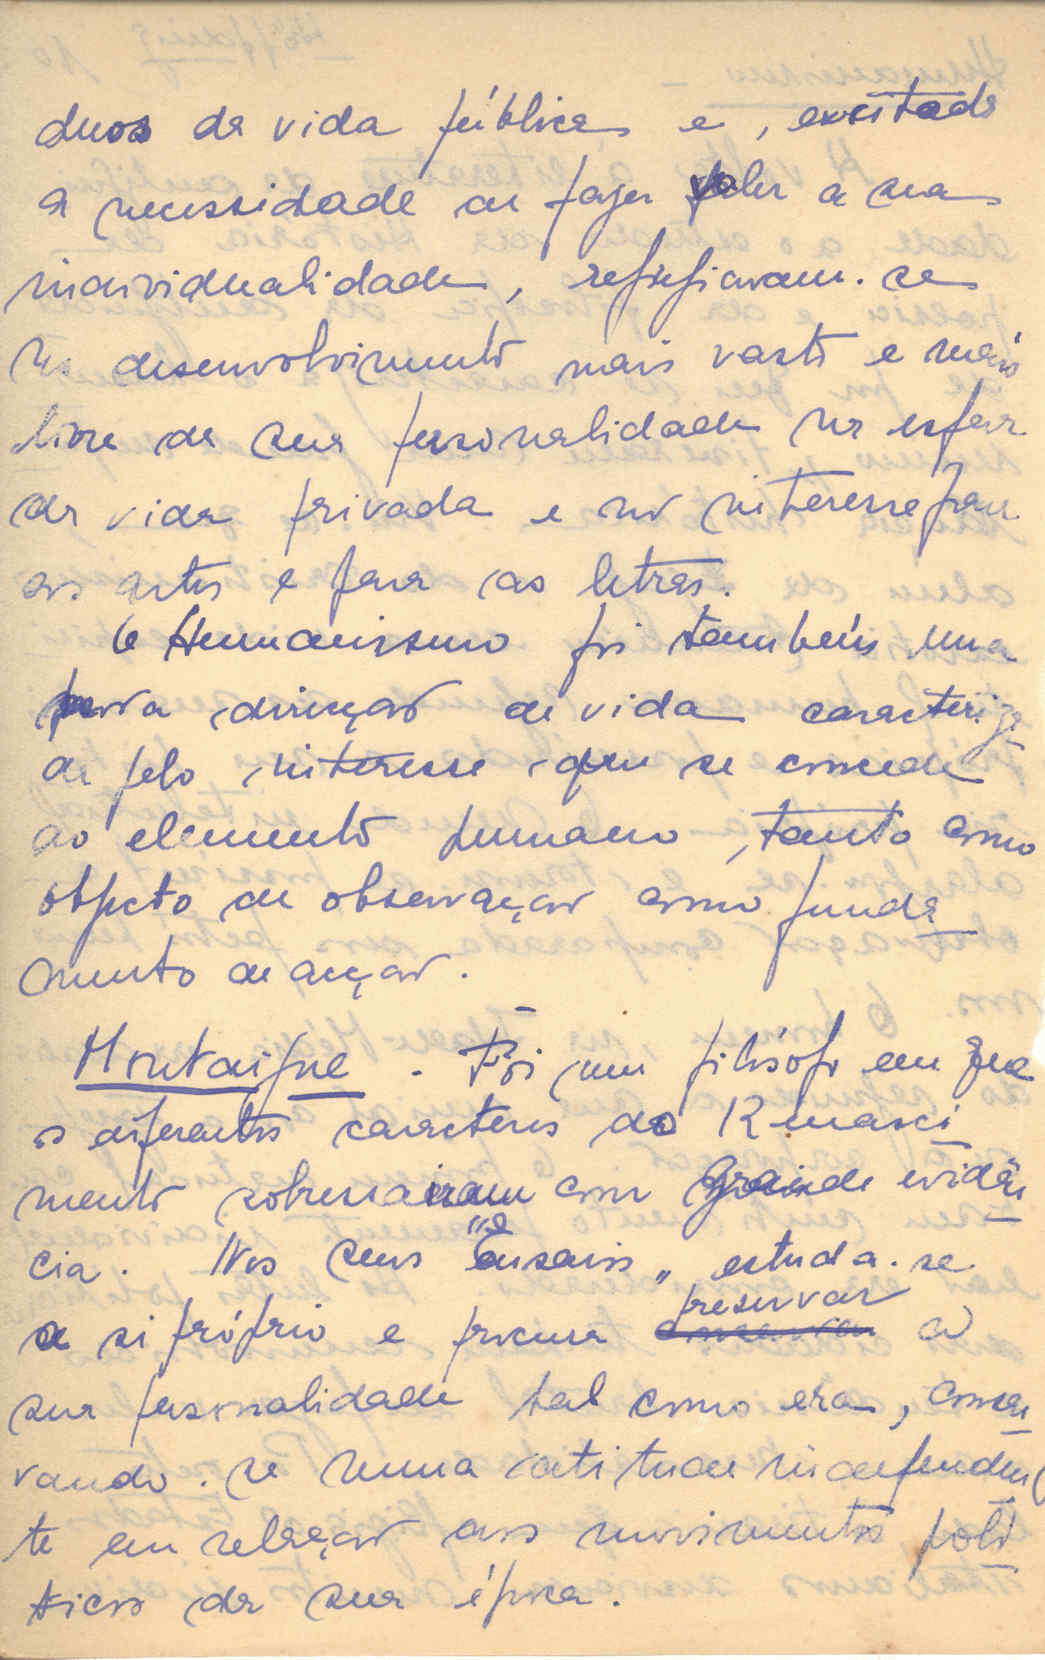 duos da vida pública e, excitada
a necessidade de fazer valer a sua
individualidade, refugiavam-se
no desenvolvimento mais vasto e mais
livre da sua personalidade na esfera
da vida privada e no interesse pelas
as artes e para as letras.
O Humanismo foi também uma
nova direcção de vida caracteriza
da pelo interesse que se concede
ao elemento humano, tanto como
objecto de observação como funda
mento de acção.
Montaigne. Foi um filósofo em que
os diferentes caracteres do Renasci
mento sobressairam com grande evidên
cia. Nos seus "Ensaios" estuda-se
a si próprio e procura preservar a
sua personalidade tal como era, conser
vando-se numa atitude independen
te em relação aos movimentos polí
ticos da sua época.